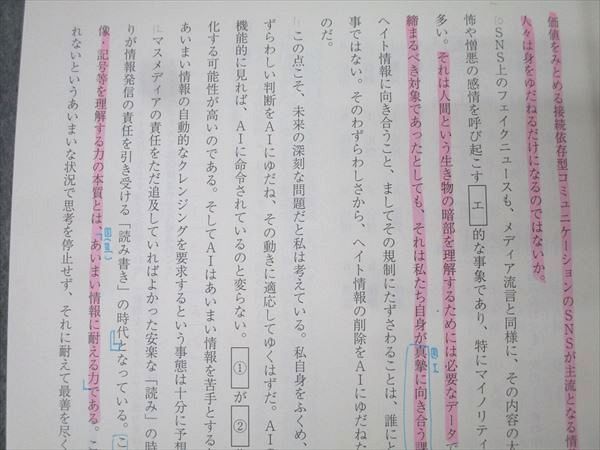 価値をみとめる接続依存型コミュニケーションのSNSが主流となる情
人々は身をゆだねるだけになるのではないか。
SNS上のフェイクニュースも、メディア流言と同様に、その内容の大
怖や憎悪の感情を呼び起こす エ 的な事象であり、特にマイノリティ
多い。それは人間という生き物の暗部を理解するためには必要なデータで
締まるべき対象であったとしても、それは私たち自身が真摯に向き合う課
ヘイト情報に向き合うこと、ましてその規制にたずさわることは、誰にと
事ではない。そのわずらわしさから、ヘイト情報の削除をAIにゆだねた
のだ。
この点こそ、未来の深刻な問題だと私は考えている。私自身をふくめ、
ずらわしい判断をAIにゆだね、その動きに適応してゆくはずだ。AIの
機能的に見れば、AIに命令されているのと変らない。 ① が ②
化する可能性が高いのである。そしてAIはあいまい情報を苦手とする
あいまい情報の自動的なクレンジングを要求するという事態は十分に予想
マスメディアの責任をただ追及していればよかった安楽な「読み」の時
りが情報発信の責任を引き受ける「読み書き」の時代となっている。こ
像・記号等を理解する力の本質とは、「あいまい情報に耐える力」である。こ
れないというあいまいな状況で思考を停止せず、それに耐えて最善を尽く